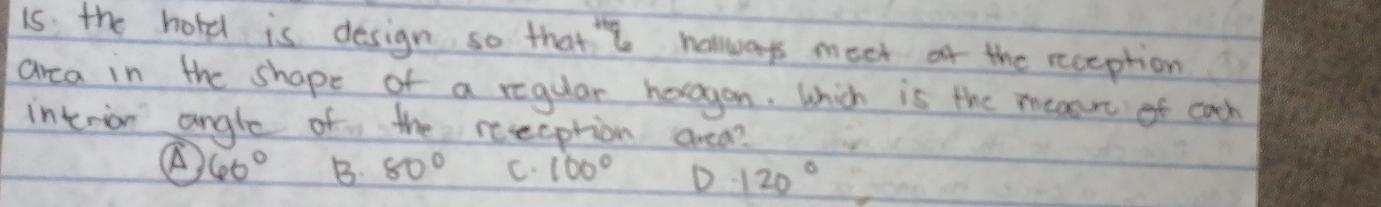 15. the hotel is design so that the 6 hallways meet at the reception
area in the shape of a regular hexagon. Which is the measure of each
interior angle of the reception area?
A) 60° B. 80° C. 100° D. 120°